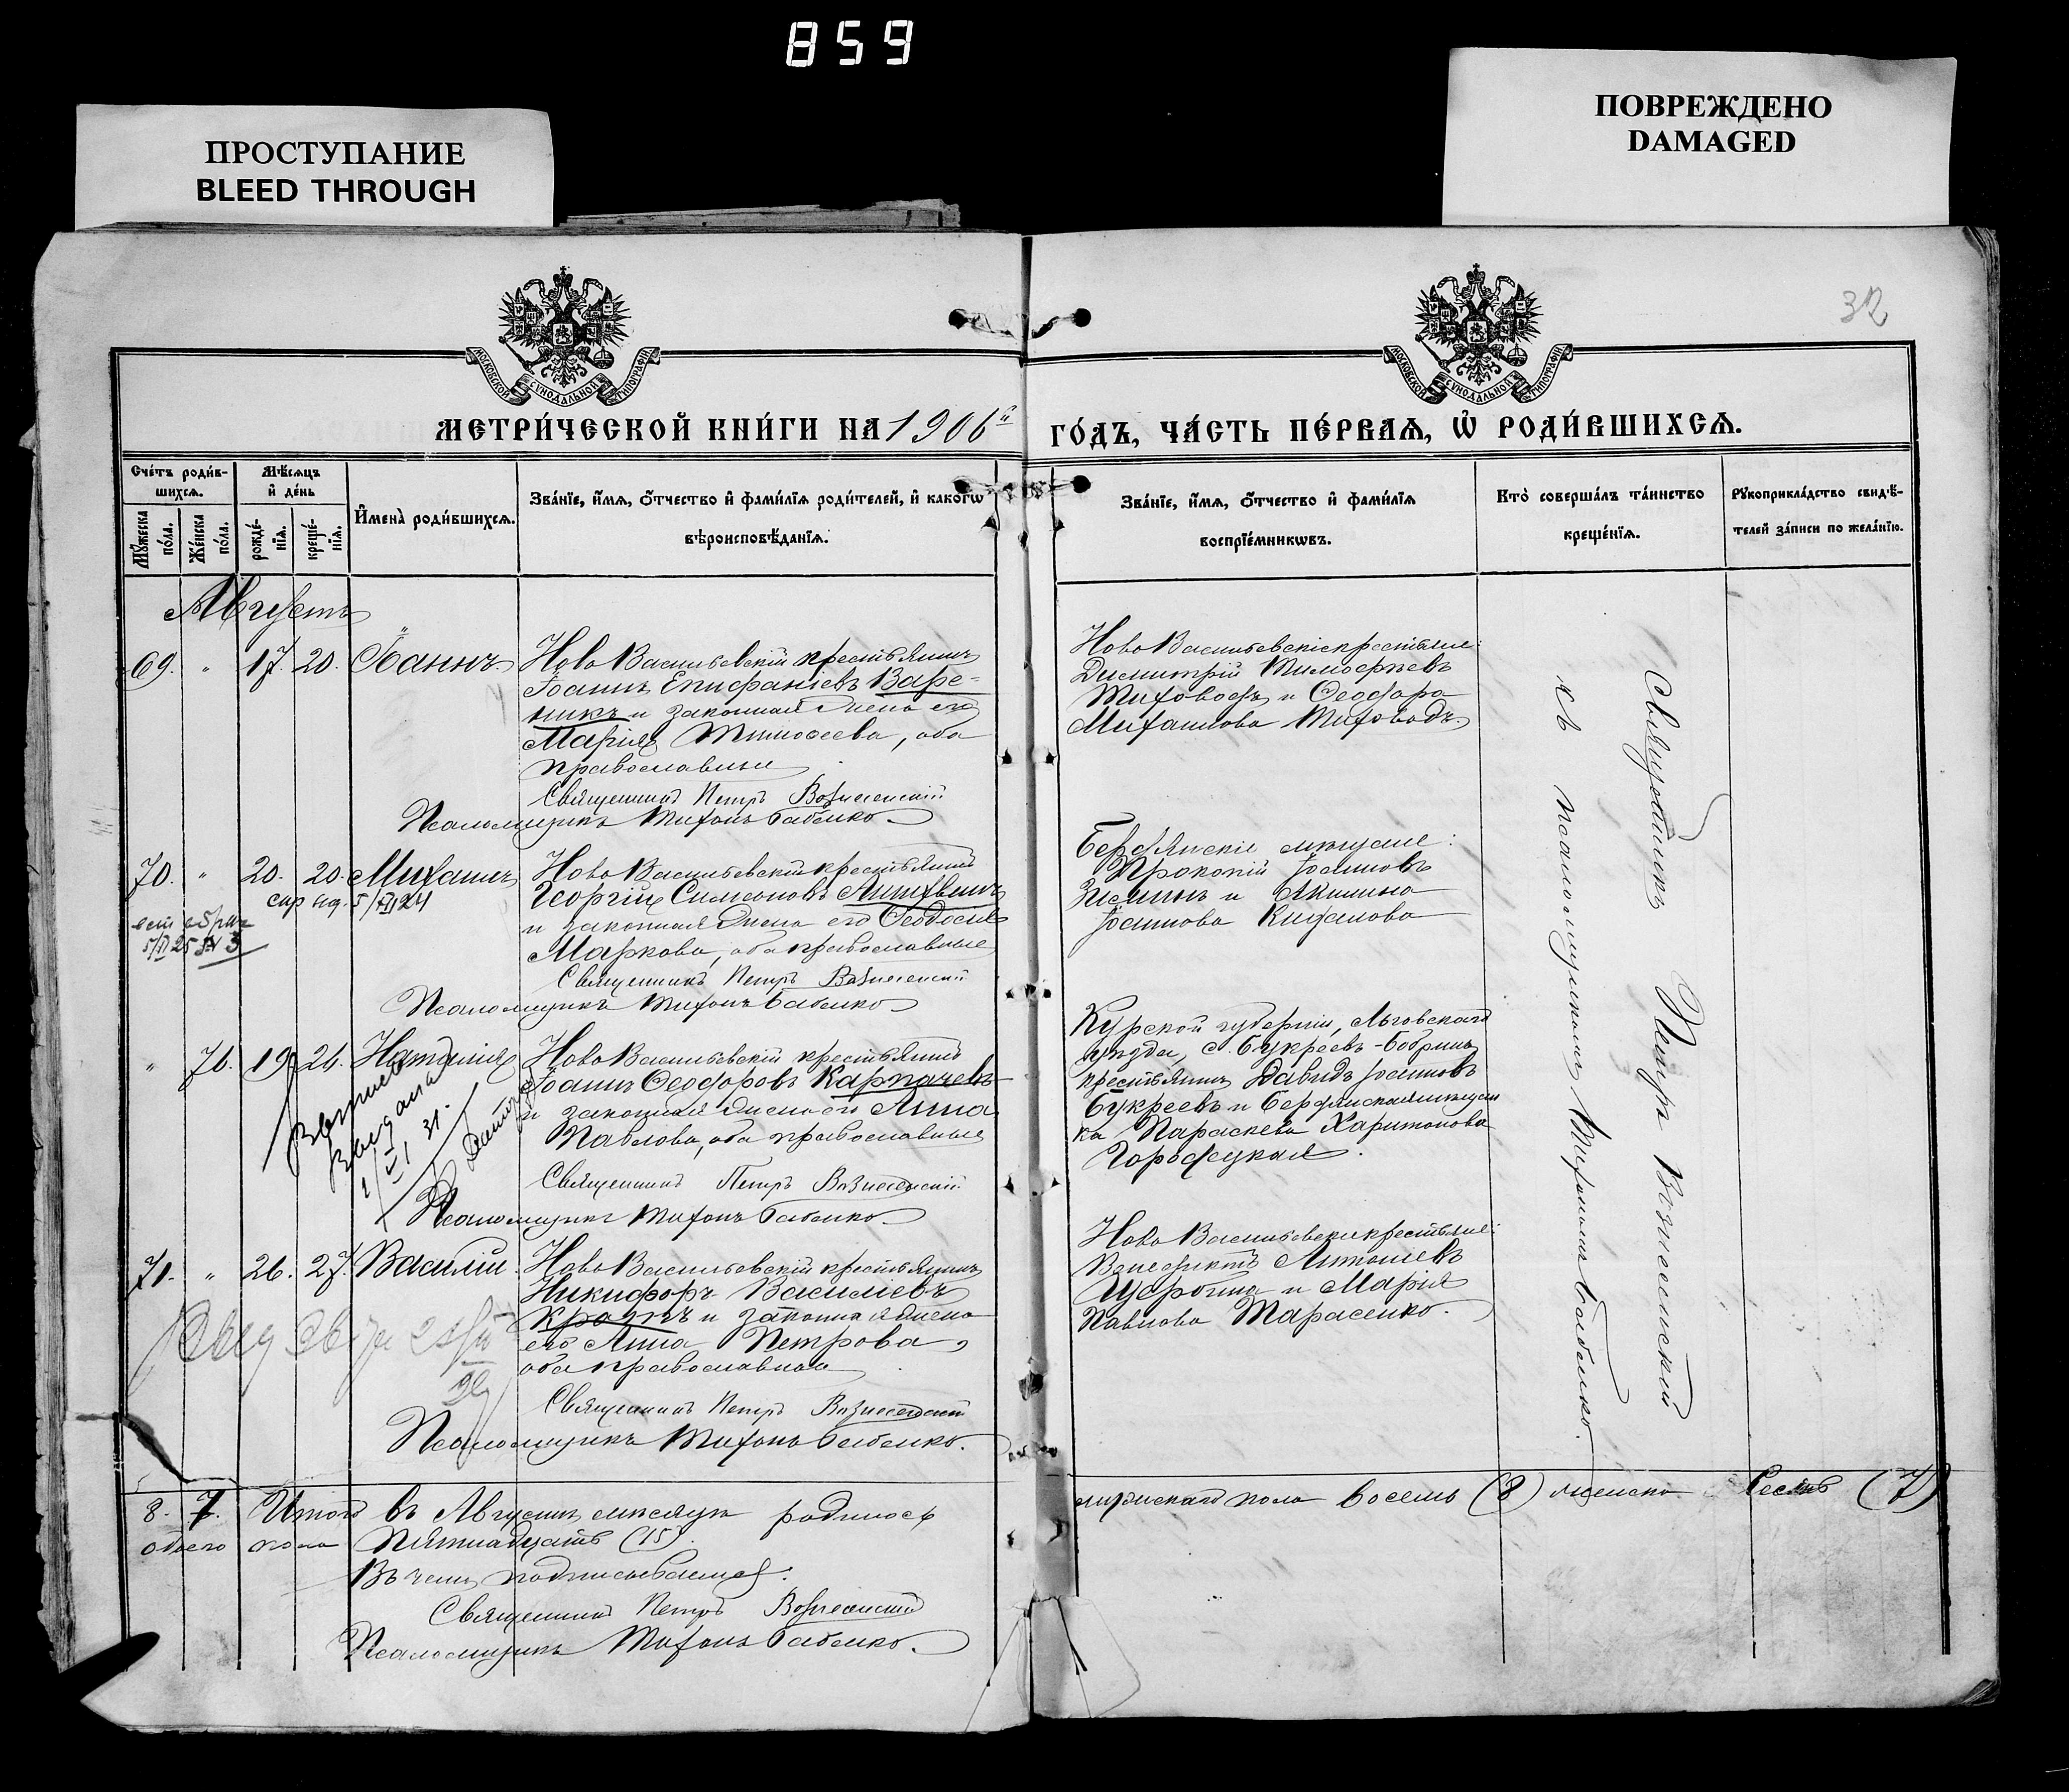 859
ПРОСТУПАНИЕ
BLEED THROUGH
ПОВРЕЖДЕНО
DAMAGED
32
МОСКОВСКОЙ СѴНОДАЛЬНОЙ ТИПОГРАФІИ
МОСКОВСКОЙ СѴНОДАЛЬНОЙ ТИПОГРАФІИ
МЕТРИ́ЧЕСКОЙ КНИ́ГИ НА 1906й ГО́ДЪ, ЧА́СТЬ ПЕ́РВАѦ, Ѡ҆ РОДИ́ВШИХСѦ.
Сче́тъ роди́в-
шихсѧ.
Мꙋ́жеска по́ла.
Же́нска по́ла.
Мѣ́сѧцъ
и҆ де́нь
рожде́-
нїѧ.
креще́-
нїѧ.
И҆мена̀ роди́вшихсѧ.
Зва́нїе, и҆́мѧ, ѻ҆́тчество и҆ фами́лїѧ роди́телей, и҆ како́гѡ
вѣроисповѣ́данїѧ.
Зва́нїе, и҆́мѧ, ѻ҆́тчество и҆ фами́лїѧ
воспрїе́мникѡвъ.
Кто̀ соверша́лъ та́инство
креще́нїѧ.
Рꙋкоприкла́дство свидѣ́-
телей за́писи по жела́нїю.
Августъ
69. " 17. 20. Іоаннъ. Ново Васильевскій крестьянинъ
Іоаннъ Епифаніевъ Варе-
никъ и законная жена его
Марія Тимоѳеева, оба
православные
Священникъ Петръ Вознесенскій
Псаломщикъ Тихонъ Бабенко.
Ново Васильевскіе крестьяне:
Димитрій Тимофѣевъ
Тиховодъ и Ѳеодора
Михаилова Тиховодъ.
70. " 20. 20. Михаилъ Ново Васильевскій крестьянинъ
Георгій Симеоновъ Литвинъ
и законная жена его Ѳеодосія
Маркова, оба православные
Священникъ Петръ Вознесенскій
Псаломщикъ Тихонъ Бабенко
Бердянскіе мѣщане:
Прокопій Іоанновъ
и Акилина
Іоаннова
" 76. 19. 24. Наталія Ново Васильевскій крестьянинъ
Іоаннъ Ѳеодоровъ Карпачевъ
и законная жена его Анна
Павлова, оба православные
Священникъ Петръ Вознесенскій
Псаломщикъ Тихонъ Бабенко.
Курской губерніи, Льговскаго
уѣзда, с. Букреевъ-Бобрикъ
крестьянинъ Давидъ Іоанновъ
Букреевъ и Бердянская мѣщан
ка Параскева Харитонова
Городецкая.
71. " 26. 27. Василій. Ново Васильевскій крестьянинъ
Никифоръ Василіевъ
Кротъ и законная жена
его Анна Петрова,
оба православные
Священникъ Петръ Вознесенскій
Псаломщикъ Тихонъ Бабенко.
Ново Васильевскіе крестьяне:
Антоніевъ
и Марія
Павлова Тарасенко.
Священникъ Петръ Вознесенскій
съ псаломщикомъ Тихономъ Бабенко.
8. 7. Итого въ Августѣ мѣсяцѣ родилось мужскаго пола восемь (8) женска семь (7)
обоего пола пятнадцать (15).
Въ чемъ подписываемся:
Священникъ Петръ Вознесенскій
Псаломщикъ Тихонъ Бабенко.